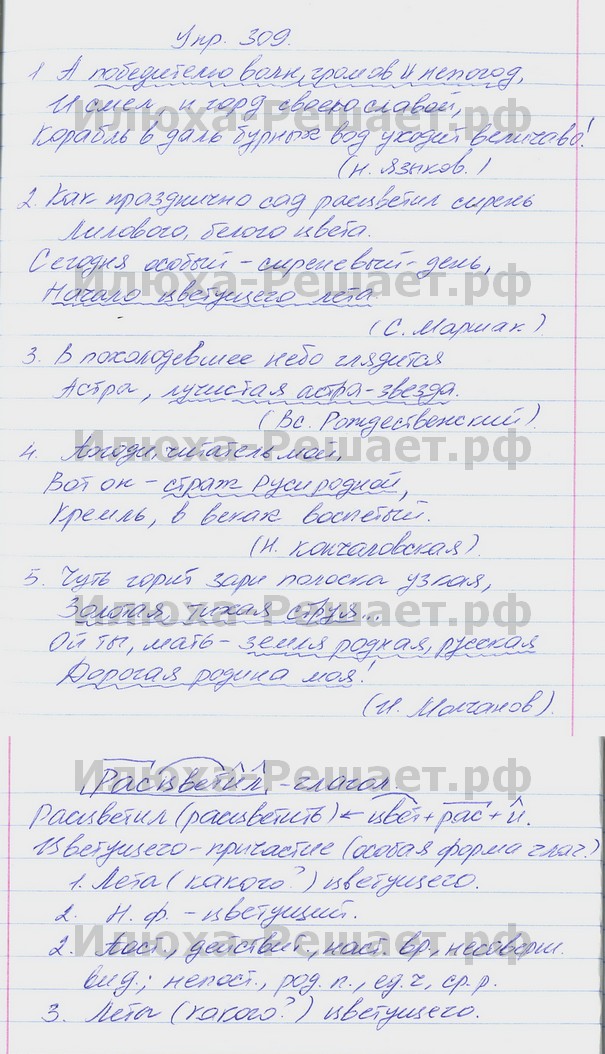 Упр. 309.
1 А победителю волн, громов и непогод,
И смел, и горд своею славой,
Корабль в даль бурных вод уходит величаво!
(Н. Языков.)
2. Как празднично сад расцветил сирень
Лилового, белого цвета.
Сегодня особый – сиреневый – день,
Начало цветущего лета
(С. Маршак.)
3. В похолодевшее небо глядится
Астра, лучистая астра-звезда.
(Вс. Рождественский).
4. Погоди, читатель мой,
Вот он – страж Руси родной,
Кремль, в веках воспетый.
(Н. Кончаловская).
5. Чуть горит зари полоска узкая,
Золотая, тихая струя...
Ой ты, мать – земля родная, русская
Дорогая родина моя!
(И. Молчанов).
Расцветил – глагол.
Расцветил (расцветить) ← цвет + рас + и.
Цветущего – причастие (особая форма глаг.)
1. Лета (какого?) цветущего.
2. Н. ф. – цветущий.
2. Пост., действит., наст. вр., несоверш.
вид.; непост., род. п., ед.ч, ср.р.
3. Лета (какого?) цветущего.
Илюха-Решает.рф
Илюха-Решает.рф
Илюха-Решает.рф
Илюха-Решает.рф
Илюха-Решает.рф
Илюха-Решает.рф
Илюха-Решает.рф